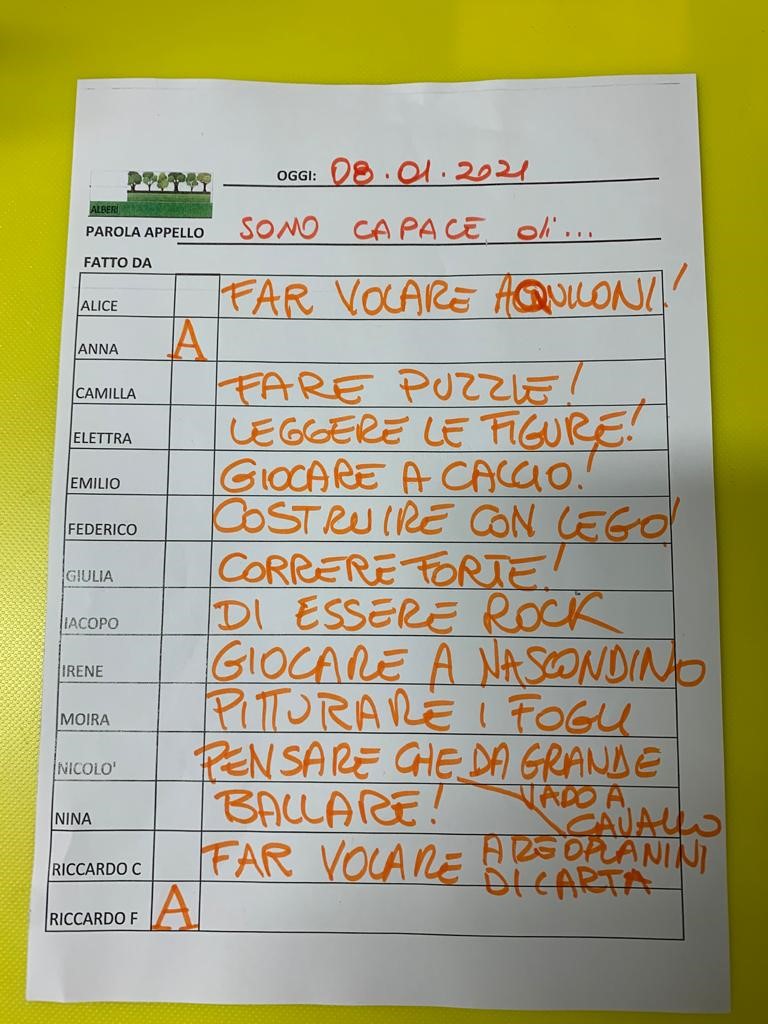 OGGI: 08.01.2021
ALBERI
PAROLA APPELLO SONO CAPACE di...
FATTO DA
ALICE FAR VOLARE AQUILONI!
ANNA A
CAMILLA FARE PUZZLE!
ELETTRA LEGGERE LE FIGURE!
EMILIO GIOCARE A CALCIO!
FEDERICO COSTRUIRE CON LEGO!
GIULIA CORRERE FORTE!
IACOPO DI ESSERE ROCK
IRENE GIOCARE A NASCONDINO
MOIRA PITTURARE I FOGLI
NICOLO' PENSARE CHE DA GRANDE
VADO A
CAVALLO
NINA BALLARE!
RICCARDO C FAR VOLARE AREOPLANINI
DI CARTA
RICCARDO F A